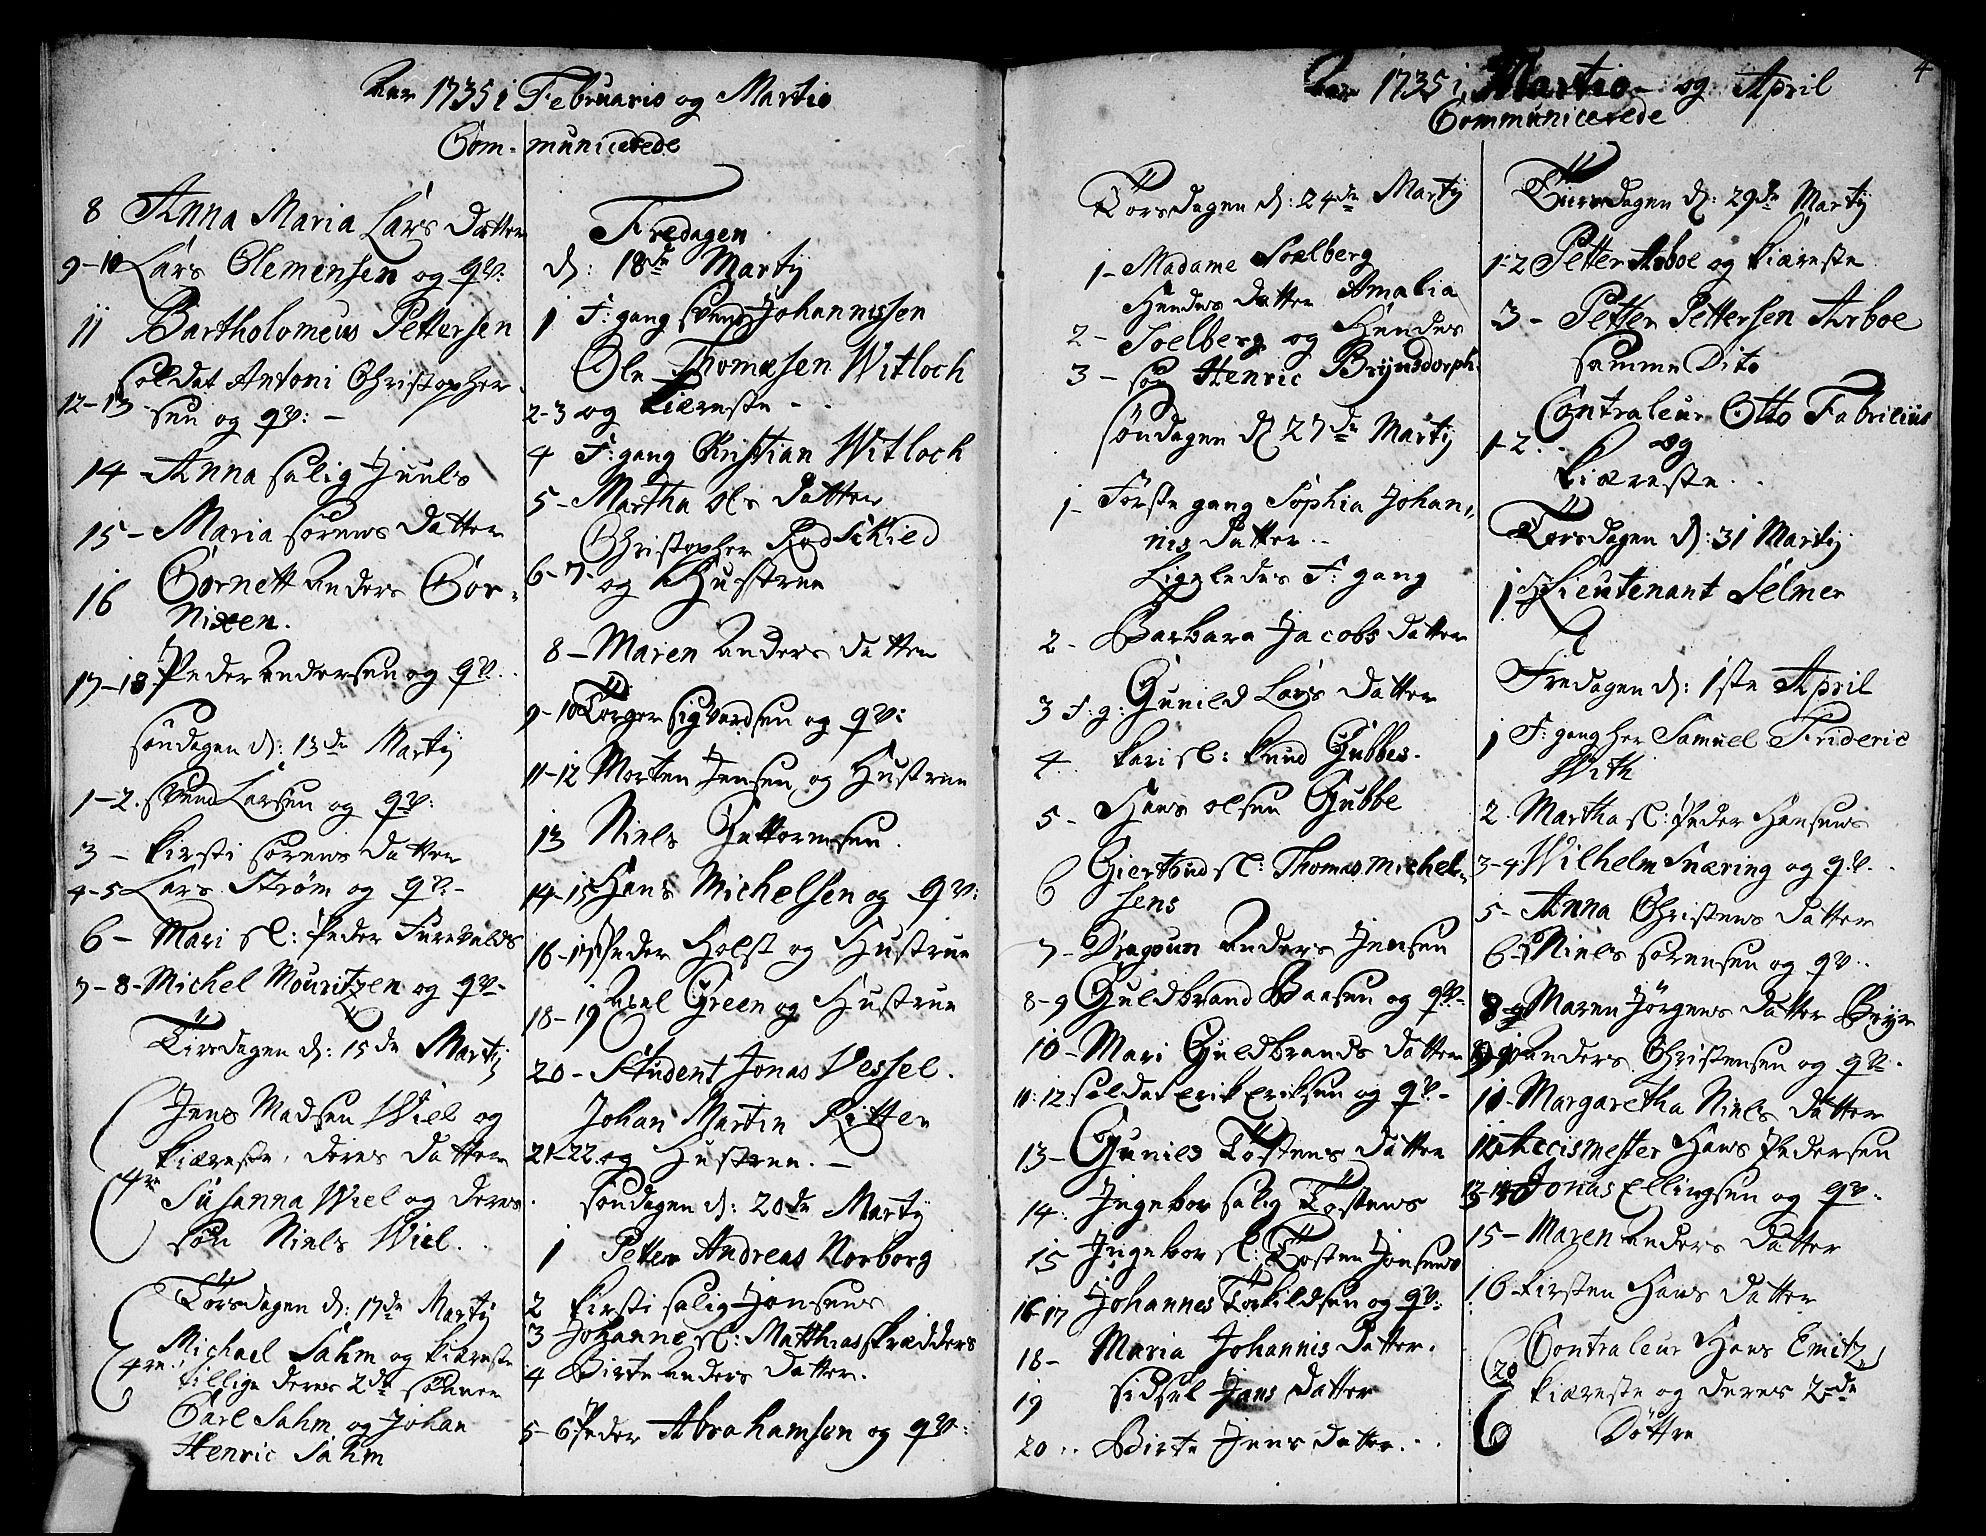 Aar 1735 i Februario og Martio
Com-municerede
8 Anna Maria Lars datter
9-10 Lars Clemensen og qv.
11 Bartholomeus Pettersen
soldat Antoni Christopher
12-13 sen og qv: -
14 Anna salig Juuls
15 - Maria Sørens datter
16 Cornett Anders Cor-
Nixen.
17-18 Peder Andersen og qv.
Søndagen d: 13de Martij
1-2. Svend Larsen og qv:
3 - Kirsti Sørens datter
4-5 Lars Strøm og qv-
6 - Mari sl: Peder Furevalds
7-8- Michel Mouritzen og qv-
Tirsdagen d: 15de Martij
Jens Madsen Wiel og
Kiæreste, deres datter
4re Susanna Wiel og deres
søn Niels Wiel.
Torsdagen d: 17de Martij
Michael Sahm og Kiæreste
4re tillige deres 2de sønner
Carl Sahm og Johan
Henric Sahm
Fredagen
d: 18de Martij
1 F: gang Svend Johannissen
Ole Thomæsen Witloch
2-3 og Kiæreste -
4 F: gang Christian Witloch
5- Martha Ols datter
Christopher Rodschied
6-7- og Hustrue
8- Maren Anders datter
9-10 Torger Sigvardsen og qv:
11-12 Morten Jensen og Hustrue
13 Niels Guttormsen.
14-15 Hans Michelsen og qv:
16-17 Peder Holst og Hustrue
18-19 Axel Green og Hustrue
20- Student Jonas Wessel.
Johan Martin Ritter
21-22. og Hustrue. -
Søndagen d: 20de Martij
1 Petter Andreas Norborg
2 Kirsti salig Jonsens
3 Johanne sl: Matthias Skrædders
4 Birte Anders datter.
5-6 Peder Abrahamsen og qv:
4
Aar 1735 i Martio - og April
Communicerede
Torsdagen d: 24de Martij
1- Madame Soelberg
Hendes datter Amalia
2- Soelberg og Hendes
3 - søn Henric Brynsdorph
Søndagen d 27de Martij
1- Første gang Sophia Johan-
nis datter..
Ligeledes F: gang
2- Barbara Jacobs datter
3 F: g: Gunild Lars datter
4. Kari sl: Knud Gubbes.
5- Hans Olsen Gubbe
6 Giertrud sl: Thomas Michel-
sens
7- Dragoun Anders Jensen
8-9 Guldbrand Baasen og qv-
10- Mari Guldbrands datter
11:12 soldat Erik Eriksen og qv-
13- Gunild Tostens datter
14. Ingebor salig Tostens
15 Ingebor sl: Tosten Jonsens
16-17 Johannes Torkildsen og qv:
18- Maria Johannis datter.
19 Sidsel Jans datter
20.. Birte Jens datter...
Tiirsdagen d: 29de Martij
1-2 Petter Arboe og Kiæreste
3- Petter Pettersen Arboe
samme Dito
Contraleur Otto Fabritius
1-2. og
Kiæreste.
Torsdagen d: 31 Martij
1 Lieutenant Selmer
Fredagen d: 1ste April
1 F: gang her Samuel Frideric
With
2. Martha sl: Peder Hansens
3-4 Wilhelm Snæring og qv.
5- Anna Christens datter
6-7 Niels Sørensen og qv.
8 Maren Jørgens datter Bryn
Anders Christensen og qv.
Margaretha Niels datter
12 Accismester Hans Pedersen
13-14 Jonas Ellingsen og qv.
15- Maren Anders datter
16- Kirsten Hans datter
Contraleur Hans Emitz,
20 Kiæreste og deres 2de
Døttre